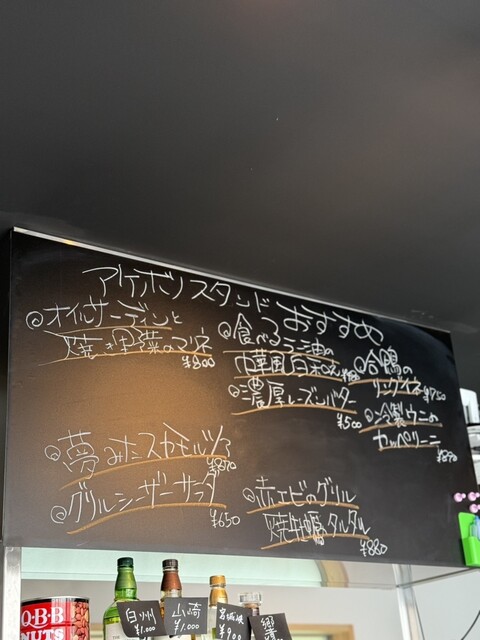 アケボノスタンドおすすめ
◎オイルサーデンと
焼き野菜のマリネ
¥800
◎食べるラー油の
中華風白和え
◎濃厚レーズンバター
¥500
◎合鴨の
リングイネ ¥1750
◎冷製ウニの
カッペリーニ
◎夢みたスカモルツァ
¥870
◎グリルシーザーサラダ
¥650
◎赤エビのグリル
焼牡蠣タルタル
¥880
O-B-B
NUTS
白州
¥1.000
山崎
¥1.000
宮城峡
¥900
響